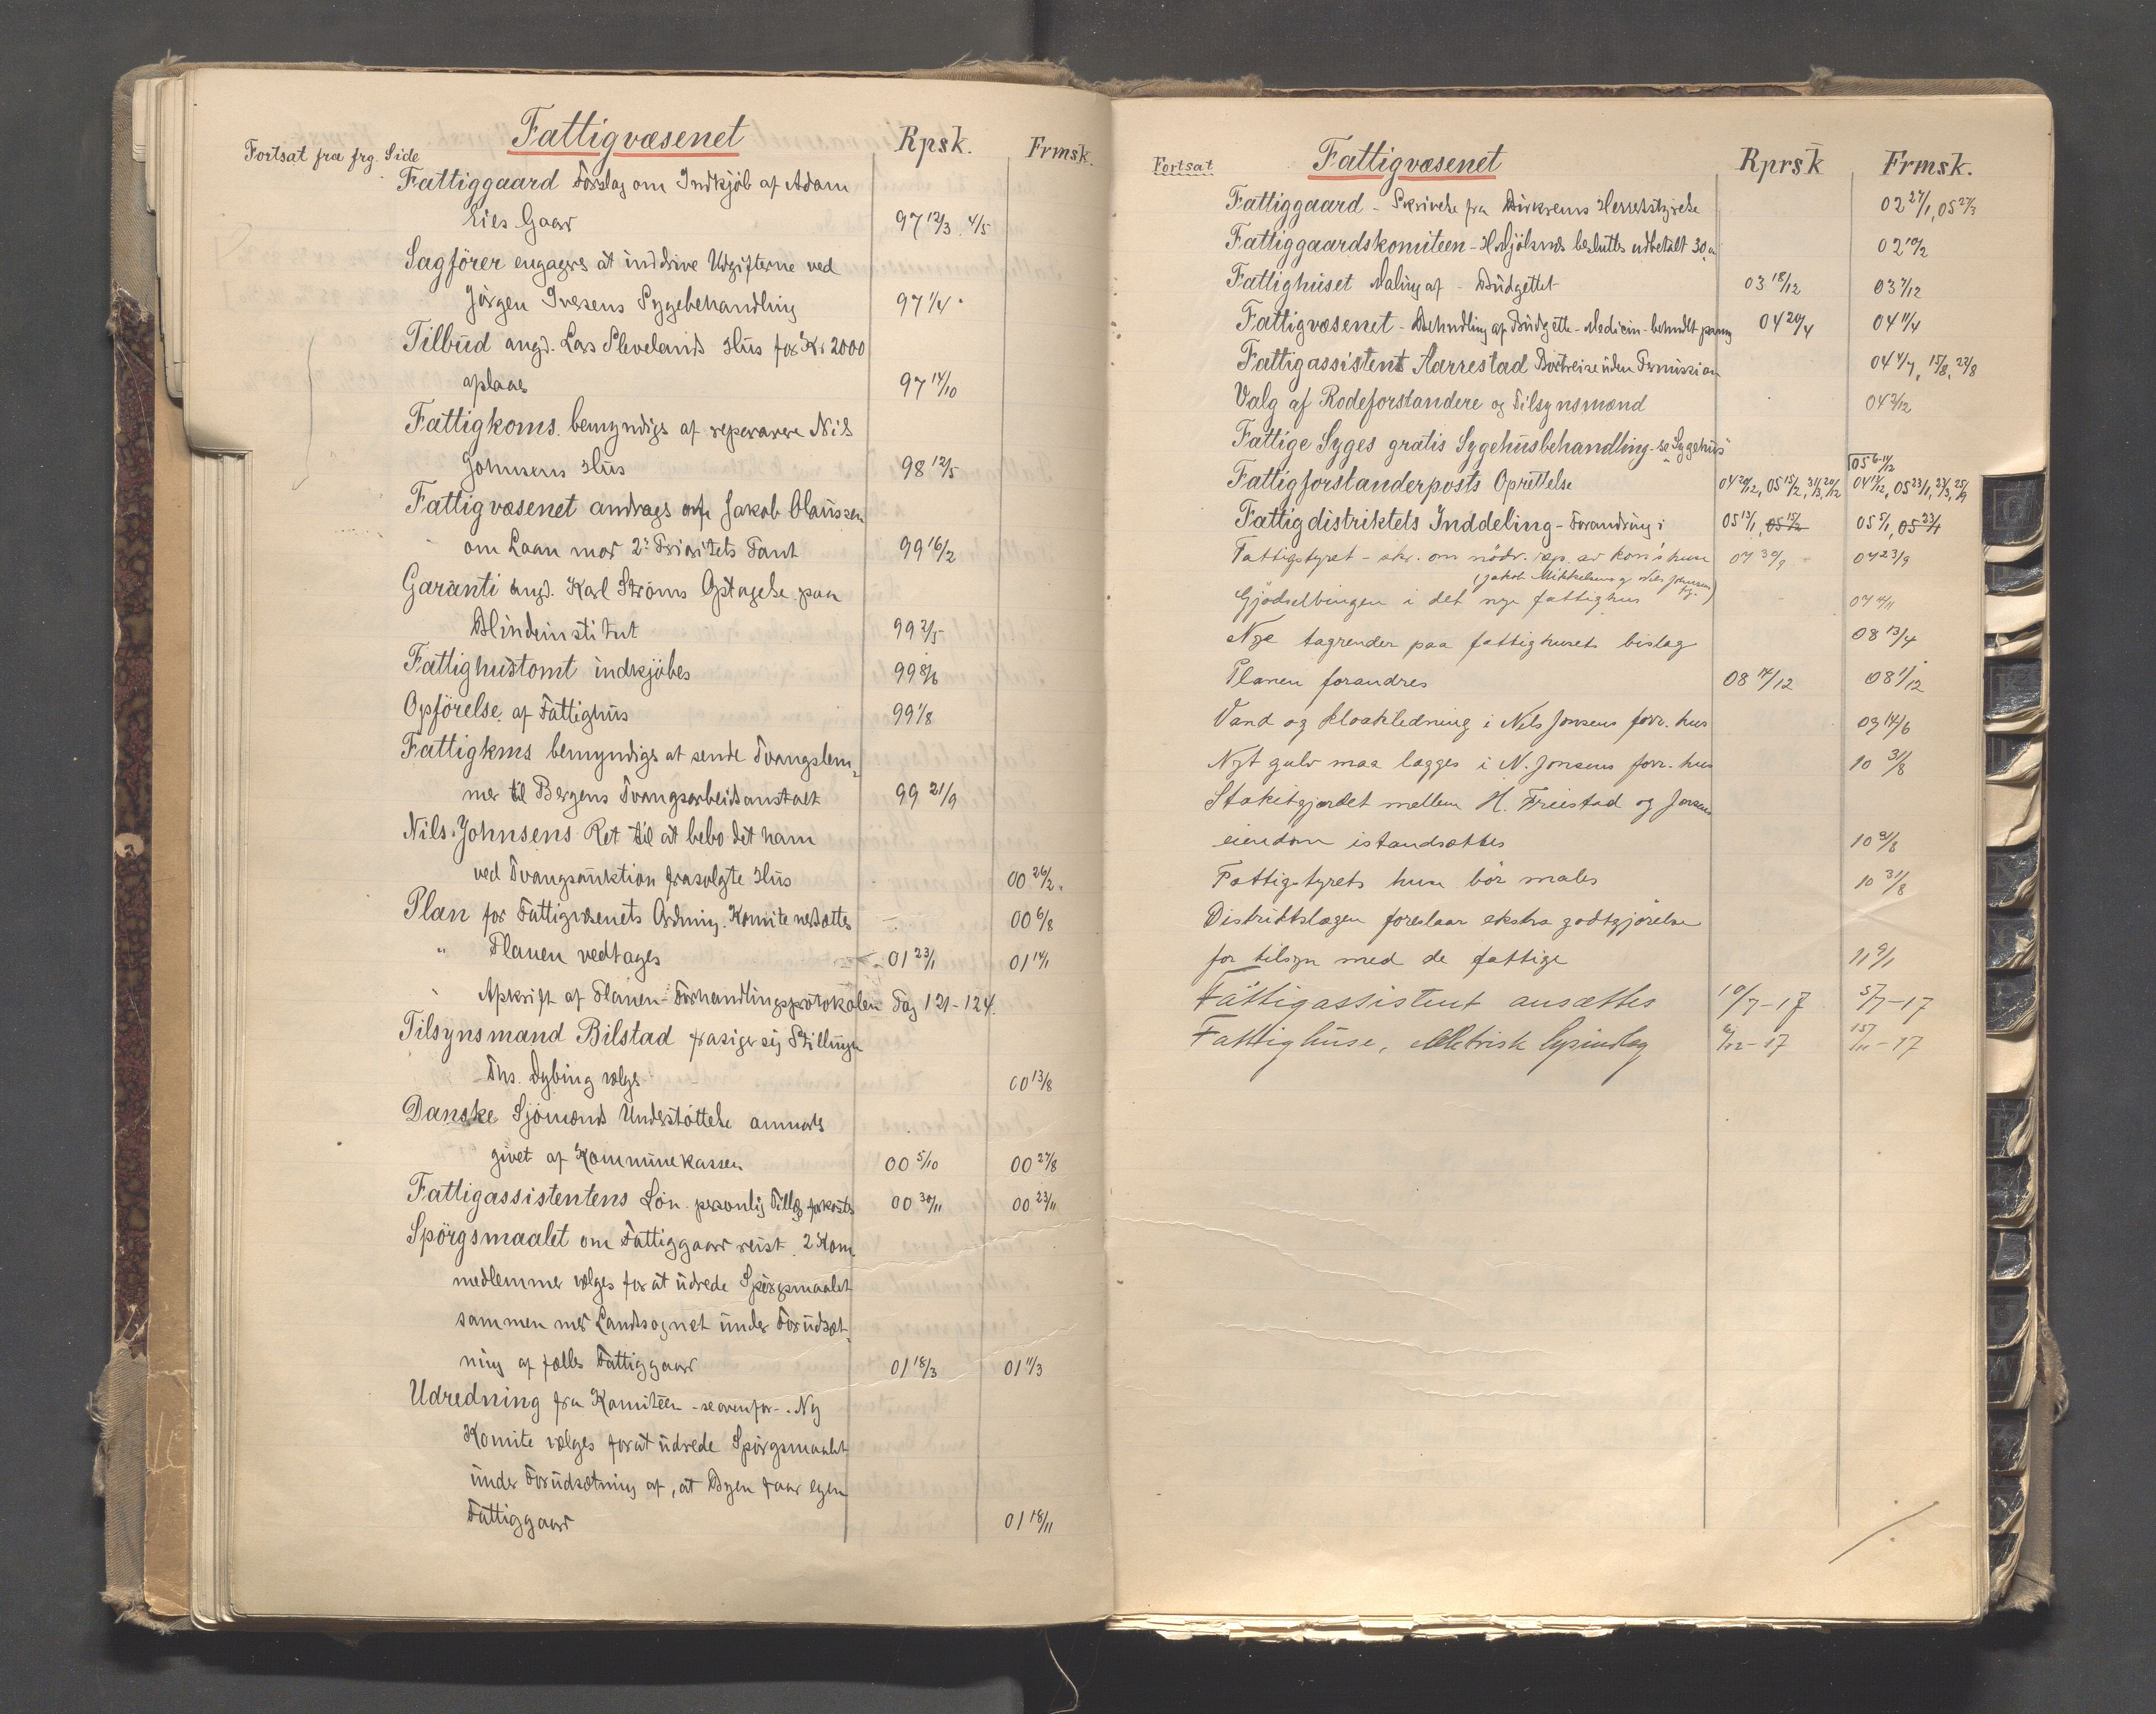 Fattigvæsenet
Rpsk.
Frmsk.
Fortsat fra frg. Side
Fattiggaard Forslag om Indkjøb af Adam
Eies Gaard 97 12/3. 4/5
Sagförer engageres at inddrive Udgifterne ved
Jörgen Iversens Sygebehandling 97 1/4
Tilbud angd. Lars Plevelands Hus for Kr 2000
afslaaes 97 14/10
Fattigkoms. bemyndigs af reparere Nils
Johnsens Hus 98 12/5
Fattigvæsenet andrages af Jakob Olaussen
om Laan mod 2den Prioritets Pant 99 16/2
Garanti angd. Karl Ströms Optagelse paa
Blindeinstitut 99 2/5
Fattighustomt indkjöbes 99 8/6
Opförelse af Fattighus 99 1/8
Fattigkms bemyndiges at sende Tvangslem-
mer til Bergens Tvangsarbeidsanstalt 99 21/9
Nils Johnsens Ret til at bebo det ham
ved Tvangsauktion frasolgte Hus 00 26/2.
Plan for Fattigvæsenets Ordning. Komite nedsættes 00 6/8
" Planen vedtages 01 23/1 01 14/1
" Afskrift af Planen - Forhandlingsprotokolen Pag 121-124.
Tilsynsmand Bilstad frasiger sig Stillingen
Ths. Dybing vælges 00 13/8
Danske Sjömænds Understöttelse anmodes
givet af Kommunekassen 00 5/10 00 27/8
Fattigassistentens Lön. personlig Tillæg forkastes 00 30/11 00 23/11
Spörgsmaalet om Fattiggaard reist. 2 Kom
medlemmer vælges for at udrede Spörgsmaalet
sammen med Landsognet under Forudsæt-
ning af fælles Fattiggaard 01 18/3 01 11/3
Udredning fra Komitéen - se ovenfor -. Ny
Komite vælges for at udrede Spörgsmaalet
under Forudsætning af, at Byen faar egen
Fattiggaard 01 18/11
Fortsat
Fattigvæsenet
Rprsk
Frmsk.
Fattiggaard - Skrivelse fra Birkrems Herredstyrelse 02 27/1, 05 27/3
Fattiggaardskomiteen - besluttes udbetalt 02 10/2
Fattighuset Maling af - Budgettet 03 18/12 03 7/12
Fattigvæsenet - Behndling af Budgette - Medicin - 04 20/4 04 11/4
Fattigassistent Aarrestad Bortreise uden Permission 04 4/7, 15/8, 23/8
Valg af Rodeforstandere og Tilsynsmænd 04 2/12
Fattige Syges gratis Sygehusbehandling - se "Sygehus"
05 6-11/12
Fattigforstanderposts Oprettelse 04 20/12, 05 15/2, 31/3, 20/12 04 19/12, 05 23/1, 27/3, 25/9
Fattigdistriktets Inddeling - Forandring i 05 13/1, 05 15/2 05 5/1, 05 23/1
Fattigstyret - skr. om nödv. rep. av kom's huse 07 30/9 07 23/9
(Jakob Mikkelsens og Nils Johnsens)
Gjödselbingen i det nye fattighus 07 4/11
Nye tagrender paa fattighusets bislag 08 13/4
Planen forandres 08 14/12 08 1/12
Vand og kloakledning i Nils Jonsens forr. hus 09 14/6
Nyt gulv maa lægges i N. Jonsens forr. hus 10 31/8
Stakitgjærdet mellem H. Freestad og Jonsens
eiendom istandsættes 10 31/8
Fattigstyrets huse bör males 10 31/8
Distriktslægen foreslaar ekstra godtgjörelse
for tilsyn med de fattige 11 9/1
Fattigassistent ansættes 10/7-17 5/7-17
Fattighuse, elektrisk lysindlæg 6/12-17 15/11-17